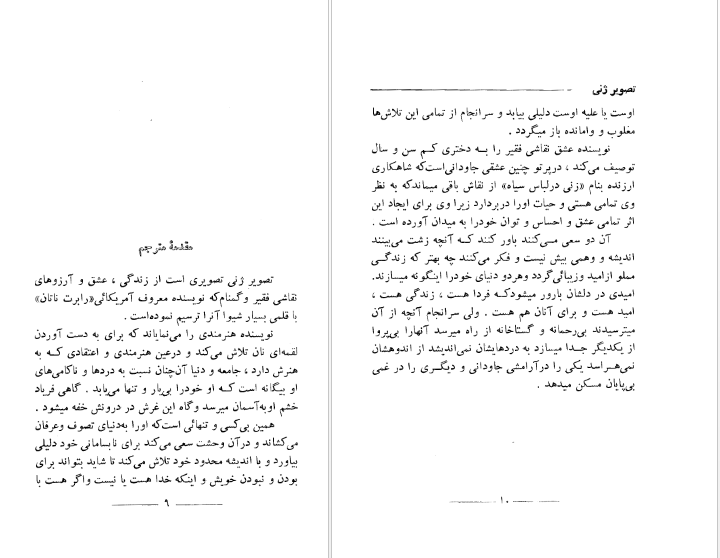 مقدمهٔ مترجم
تصویر ژنی تصویری است از زندگی ، عشق و آرزوهای
نقاشی فقیر وگمنام‌که نویسنده معروف آمریکائی«رابرت ناتان»
با قلمی بسیار شیوا آنرا ترسیم نموده‌است .
نویسنده هنرمندی را می‌نمایاند که برای به دست آوردن
لقمه‌ای نان تلاش می‌کند و درعین هنرمندی و اعتقادی کــه به
هنرش دارد ، جامعه و دنیا آن‌چنان نسبت به دردها و ناکامی‌های
او بیگانه است کــه او خودرا بی‌یار و تنها می‌یابد . گاهی فریاد
خشم اوبه‌آسمان میرسد وگاه این غرش در درونش خفه میشود .
همین بی‌کسی و تنهائی است‌که اورا به‌دنیای تصوف وعرفان
می‌کشاند و درآن وحشت سعی می‌کند برای نابسامانی خود دلیلی
بیاورد و با اندیشه محدود خود تلاش می‌کند تا شاید بتواند برای
بودن و نبودن خویش و اینکه خدا هست یا نیست واگر هست با
۹
تصویر ژنی
اوست یا علیه اوست دلیلی بیابد و سرانجام از تمامی این تلاش‌ها
مغلوب و وامانده باز میگردد .
نویسنده عشق نقاشی فقیر را بــه دختری کــم سن و سال
توصیف می‌کند ، درپرتو چنین عشقی جاودانی‌است‌که شاهکاری
ارزنده بنام «زنی درلباس سیاه» از نقاش باقی میماندکه به نظر
وی تمامی هستی و حیات اورا دربردارد زیرا وی برای ایجاد این
اثر تمامی عشق و احساس و توان خودرا به میدان آورده است .
آن دو سعی مــی‌کنند باور کنند کــه آنچه زشت می‌بینند
اندیشه و وهمی بیش نیست و فکر می‌کنند چه بهتر که زندگــی
مملو ازامید وزیبائی‌گردد وهردو دنیای خودرا اینگونه میسازند.
امیدی در دلشان بارور میشودکــه فردا هست ، زندگی هست ،
امید هست و برای آنان هم هست . ولی سرانجام آنچه از آن
میترسیدند بی‌رحمانه و گستاخانه از راه میرسد آنهارا بی‌پروا
از یکدیگر جــدا میسازد به دردهایشان نمی‌اندیشد از اندوهشان
نمی‌هــراسد یکی را درآرامشی جاودانی و دیگــری را در غمی
بی‌پایان مسکن میدهد .
۱۰